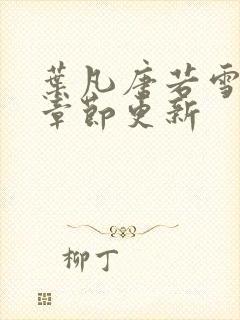 葉凡唐若雪
章節更新
柳丁